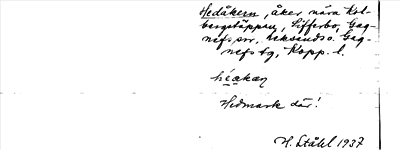 Hedåkern, åker nära Kol-
bergstäppan, Sifferbo, Gag-
nefs sn. Leksands o. Gag-
nefs tg, Kopp. l.
héakan
Hedmark där!
H. Ståhl 1937